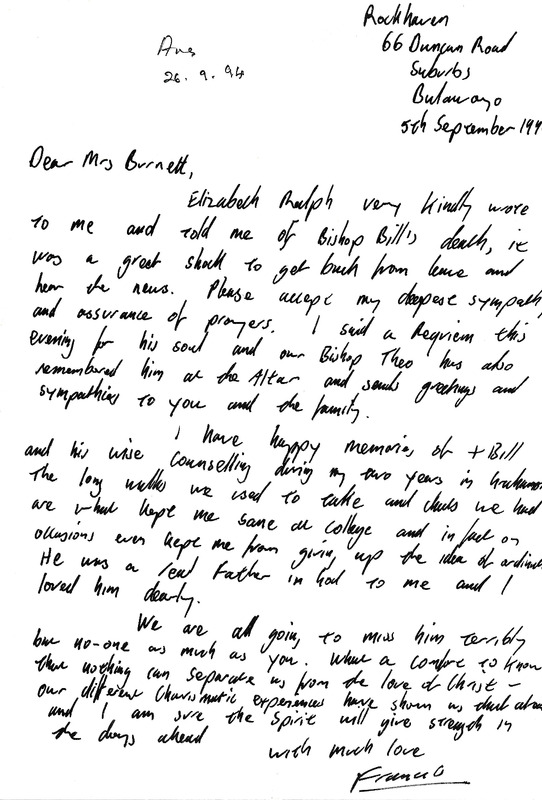 Rockhaven
66 Duncan Road
Suburbs
Bulawayo
5th September 199
Ans
26. 9. 94
Dear Mrs Burnett,
Elizabeth Ralph very kindly wrote
to me and told me of Bishop Bill's death, it
was a great shock to get back from leave and
hear the news. Please accept my deepest sympathy
and assurance of prayers. I said a Requiem this
evening for his soul and our Bishop Theo has also
remembered him at the Altar and sends greetings and
sympathies to you and the family.
I have happy memories of + Bill
and his wise counselling during my two years in
The long walks we used to take and chats we had
are what kept me sane at college and in fact on
occasions even kept me from giving up the idea of
He was a real Father in God to me and I
loved him dearly.
We are all going to miss him terribly
but no-one as much as you. What a comfort to know
that nothing can separate us from the love of Christ -
our different Charismatic experiences have shown us that
and I am sure the Spirit will give strength in
the days ahead
with much love